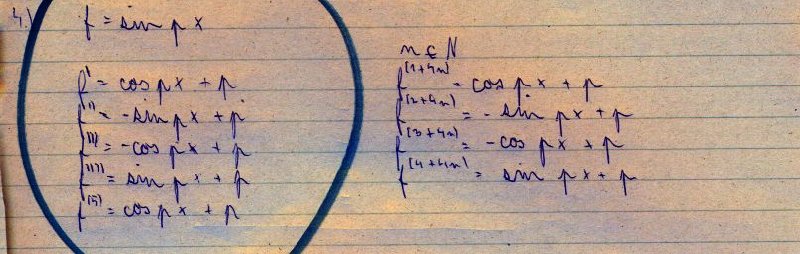 4.)
f = sin px
f' = cos px + p
f'' = -sin px + p
f''' = -cos px + p
f'''' = sin px + p
f(5) = cos px + p
n ∈ N
f(1+4n) = cos px + p
f(2+4n) = - sin px + p
f(3+4n) = - cos px + p
f(4+4n) = sin px + p